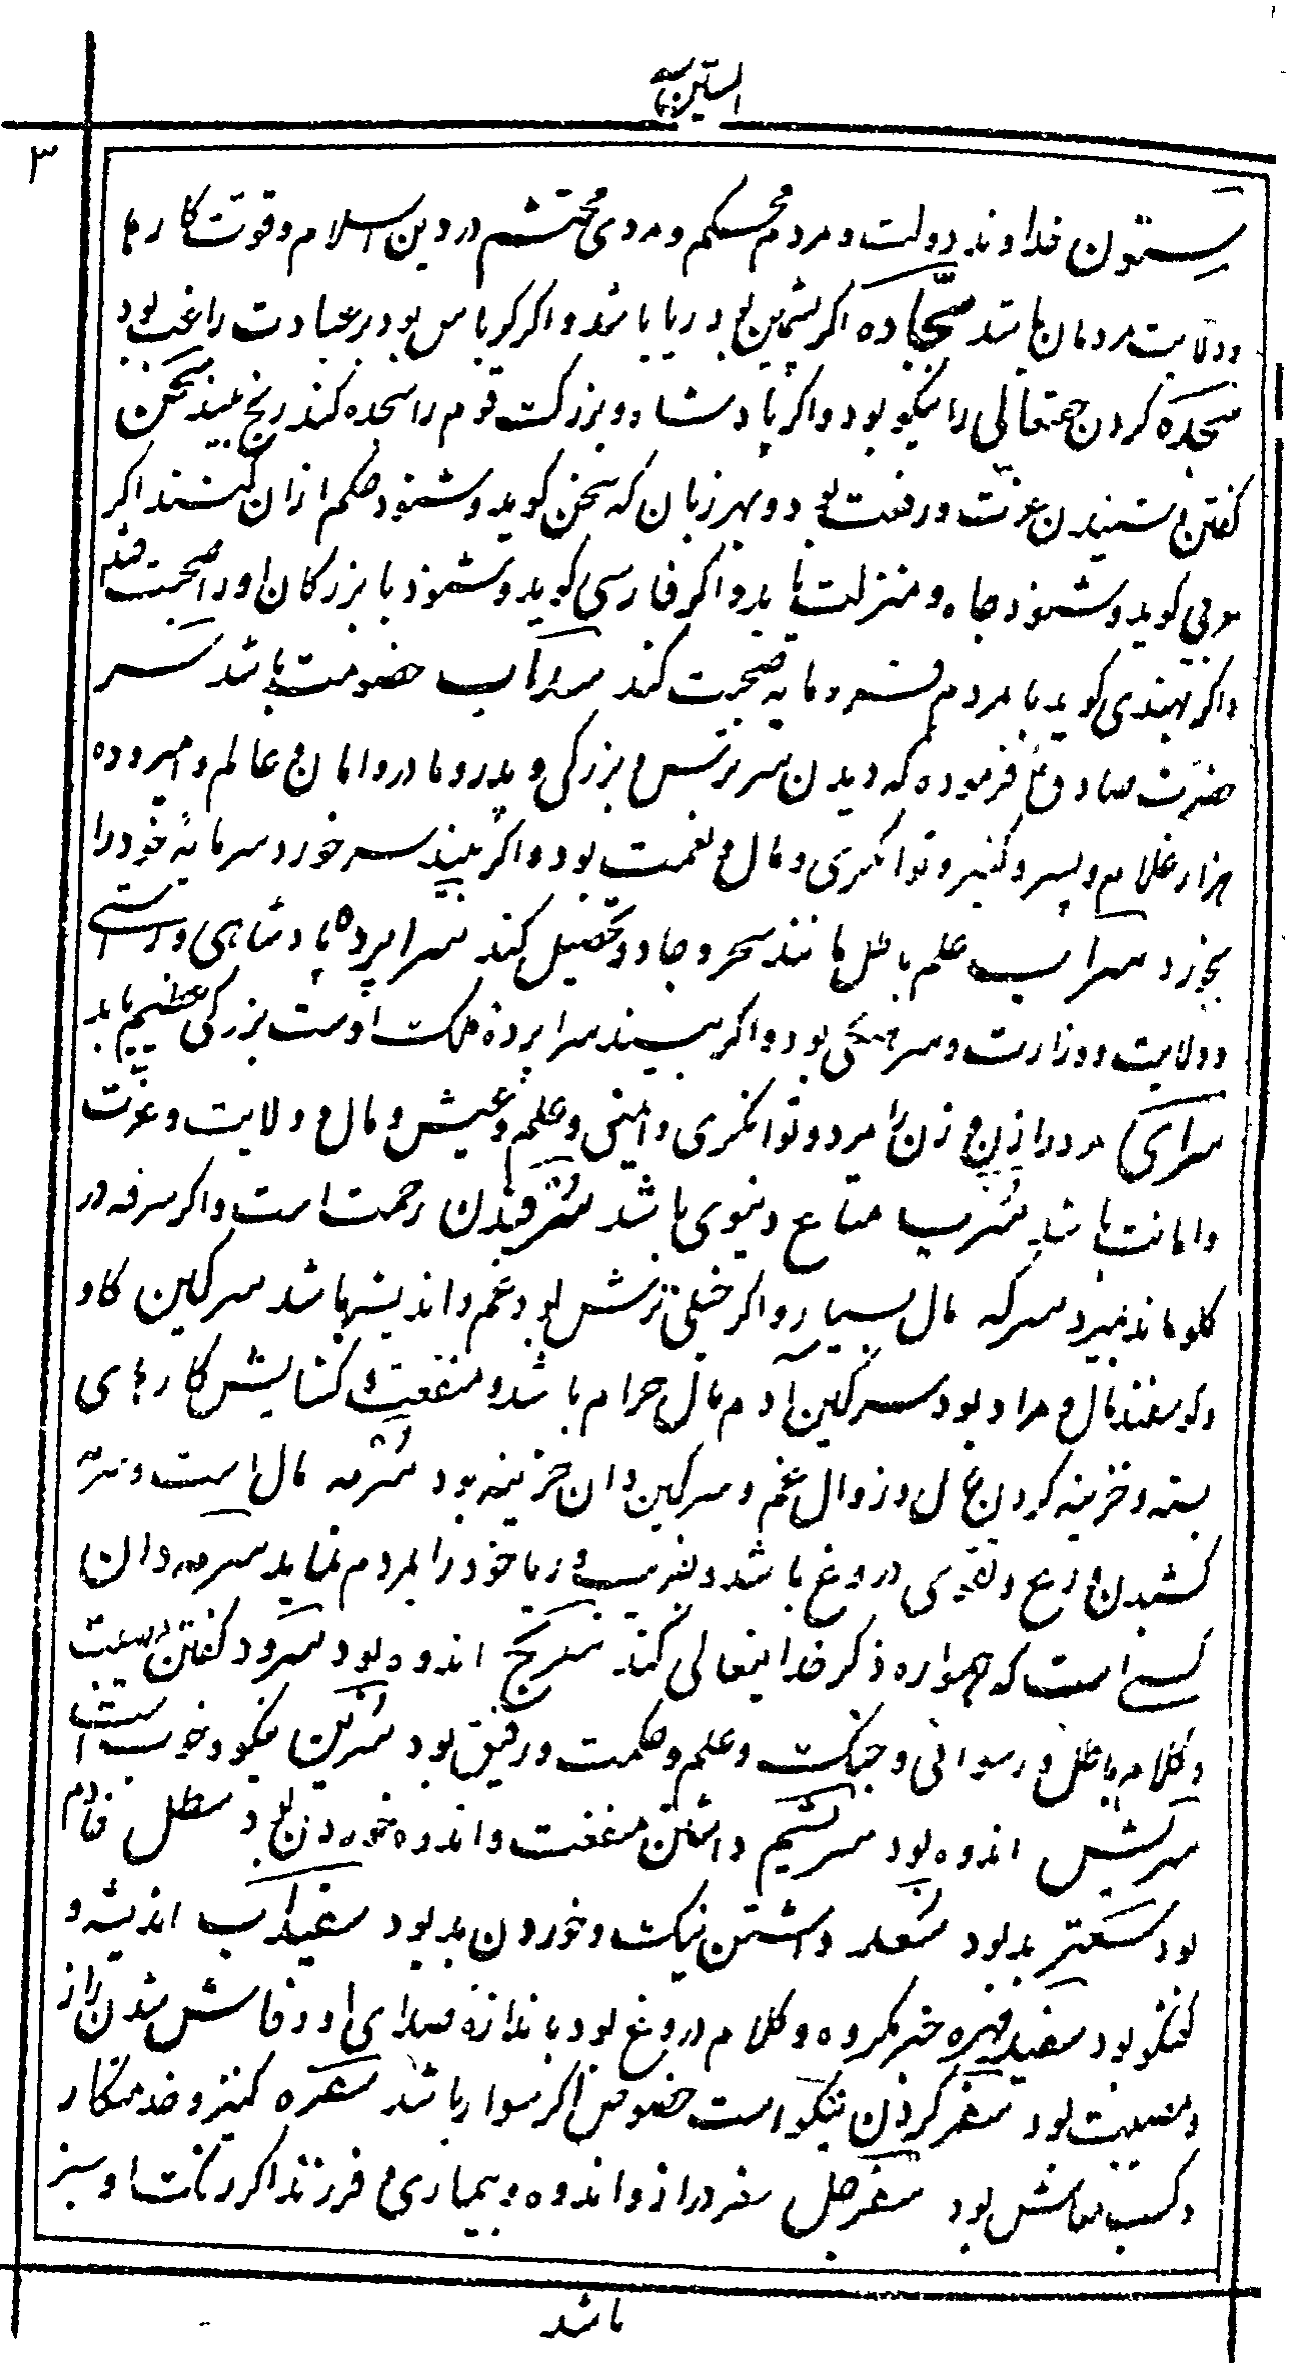 السین
۳
ستون خداوند دولت و مردم محکم و مردی محتشم در دین اسلام و قوت کارها
و ولایت مردمان باشد سجاده اگر پشمین بود ریا باشد و اگر کرباس بود بر عبادت راغب بود
سجده کردن حقتعالی را نیکو بود و اگر پادشاه و بزرگ قوم را سجده کند رنج بیند سخن
گفتن و شنیدن عزت و رفعت بود و بهر زبان که سخن گوید و شنود حکم ازان کنند اگر
عربی گوید و شنود جاه و منزلت یابد و اگر فارسی گوید و شنود با بزرگان او را صحبت افتد
و اگر بهندی گوید با مردم فرومایه صحبت کند سداب خصومت باشد سر
حضرت صادق ع فرموده که دیدن سر رئیس و بزرگی و پدر و مادر و امان و عالم و امیر و ده
هزار غلام و پسر و کنیز و توانگری و مال و نعمت بود و اگر بیند سر خورد سرمایه خود را
بخورد سراب علم باطل مانند سحر و جادو تحصیل کند سراپرده پادشاهی و راستی
و ولایت و وزارت و سرهنگی بود و اگر بیند سراپرده ملک اوست بزرگی عظیم یابد
سرای مرد را زن و زن را مرد و توانگری و ایمنی و علم و عیش و مال و ولایت و عزت
و امانت باشد سرب متاع دنیوی باشد سرفیدن رحمت است و اگر سرفه در
گلو ماند بمیرد سرکه مال بسیار و اگر خیلی ترش بود غم و اندیشه باشد سرگین گاو
و گوسفند مال و مراد بود سرگین آدم مال حرام باشد و منفعت و گشایش کارهای
بسته و خزینه کردن مال و زوال غم و سرگین دان خزینه بود سرمه مال است و سرمه
کشیدن ورع و تقوی دروغ باشد و بفریب و ریا خود را بمردم نماید سرمه دان
کسی است که همواره ذکر خدایتعالی کند سرنج اندوه بود سرود گفتن مصیبت
و کلام باطل و رسوائی و جنگ و علم و حکمت و رفیق بود سرین نیکو و خوب است
سریش اندوه بود سریشم داشتن منفعت و اندوه خوردن بود سطل خادم
بود سعتر بد بود سعد داشتن نیک و خوردن بد بود سغداب اندیشه و
گفتگو بود سفیدمهره خبر مکروه و کلام دروغ بود باندازه صدای او و فاش شدن راز
و مصیبت بود سفر کردن نیکو است خصوص اگر سوار باشد سفره کنیز و خدمتکار
و کسب معاش بود سفرجل سفر دراز و اندوه و بیماری و فرزند اگر رنگش او سبز
باشد